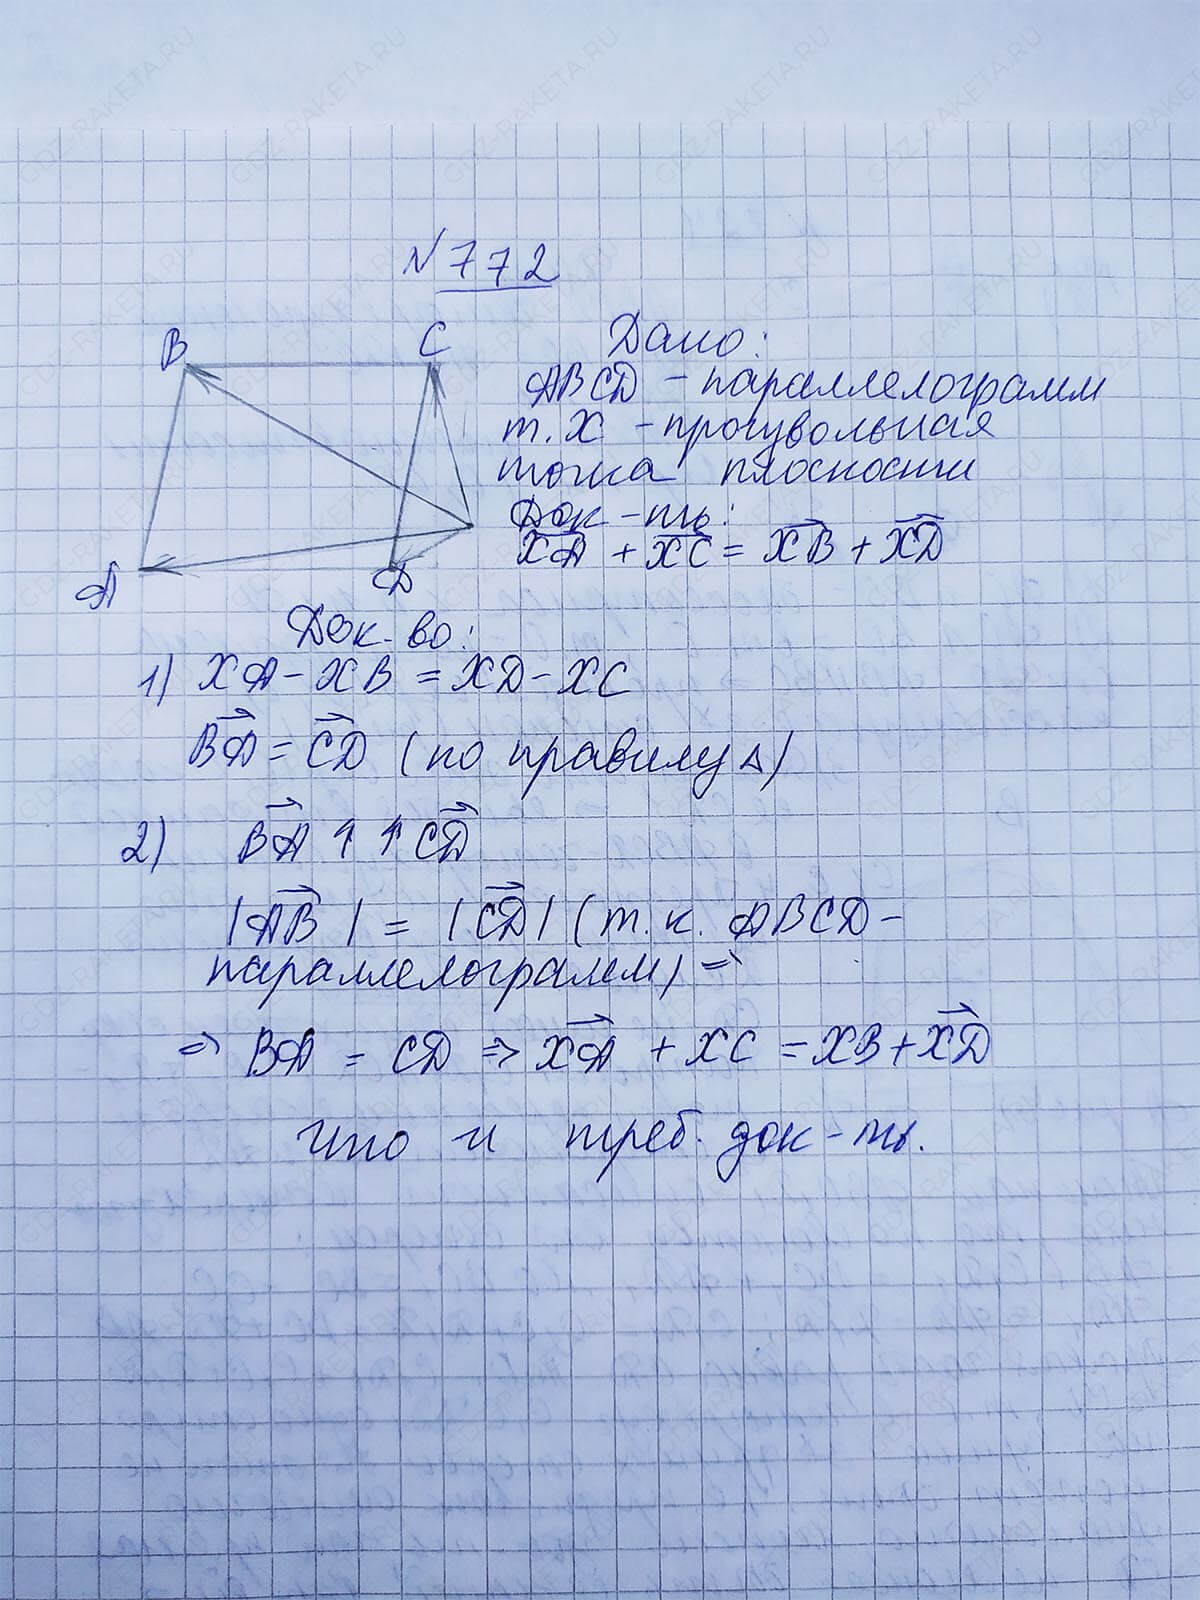 N 772
B
C
A
D
Дано:
ABCD - параллелограмм
т. X - произвольная
точка плоскости
Док-ть:
XA + XC = XB + XD
Док-во:
1) XA - XB = XD - XC
BA = CD (по правилу Δ)
2) BA ↑↑ CD
|AB| = |CD| (т.к. ABCD -
параллелограмм) ⇒
⇒ BA = CD ⇒ XA + XC = XB + XD
что и треб. док-ть.
GDZ-RAKETA.RU